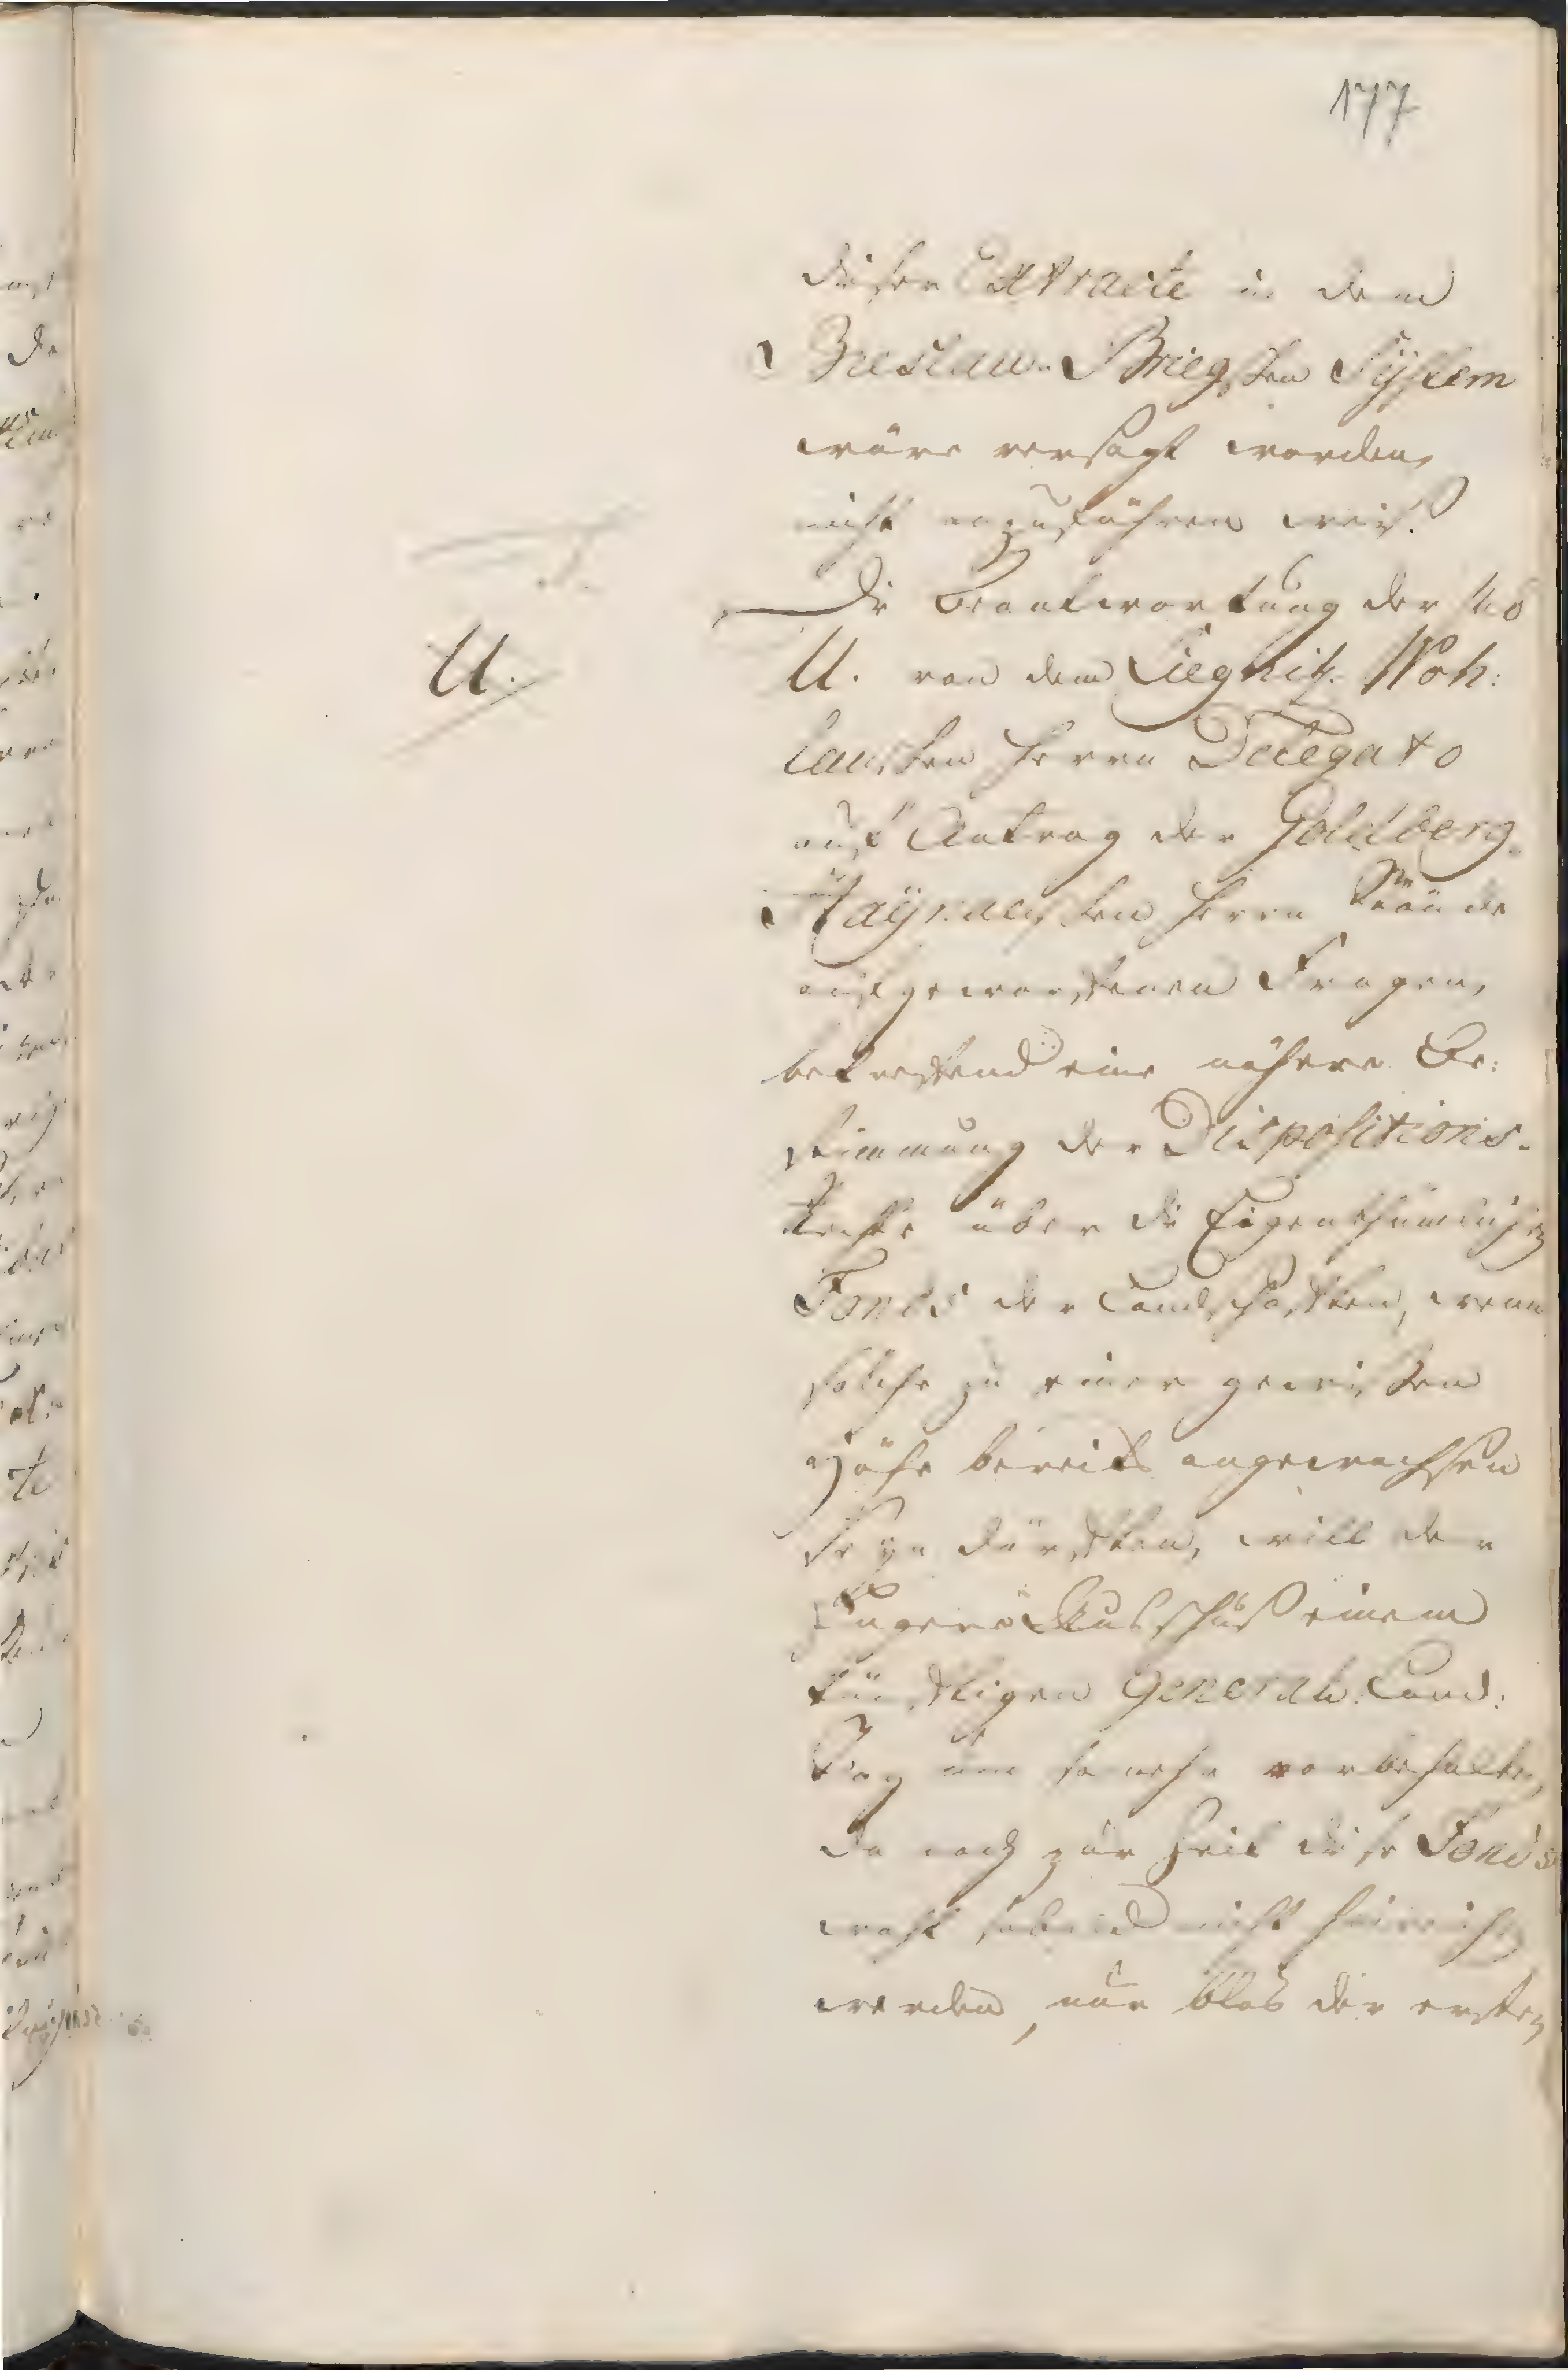 177
dieser Extracte in dem
Breslau-Briegschen System
wäre versagt worden,
nicht anzuführen weiß.
Die Beantwortung der sub
U.
U. von dem Liegnitz-Woh:
lauschen Herrn Delegato
auf Antrag der Goldberg-
Haynauschen Herrn Stände
aufgeworffenen Fragen,
betreffend eine nähere Be:
stimmung der Dispositions-
Rechte über die Eigenthümlichen
Fonds der Landschafften, wenn
solche zu einer gewissen
Höhe bereits angewachsen
seyn dürfften, will der
Engere Ausschuß einem
künfftigen General-Land:
Tag um so mehr vorbehalten,
da noch zur Zeit diese Fonds
wohl sobald nicht hinreichen
werden, nur blos der ersten